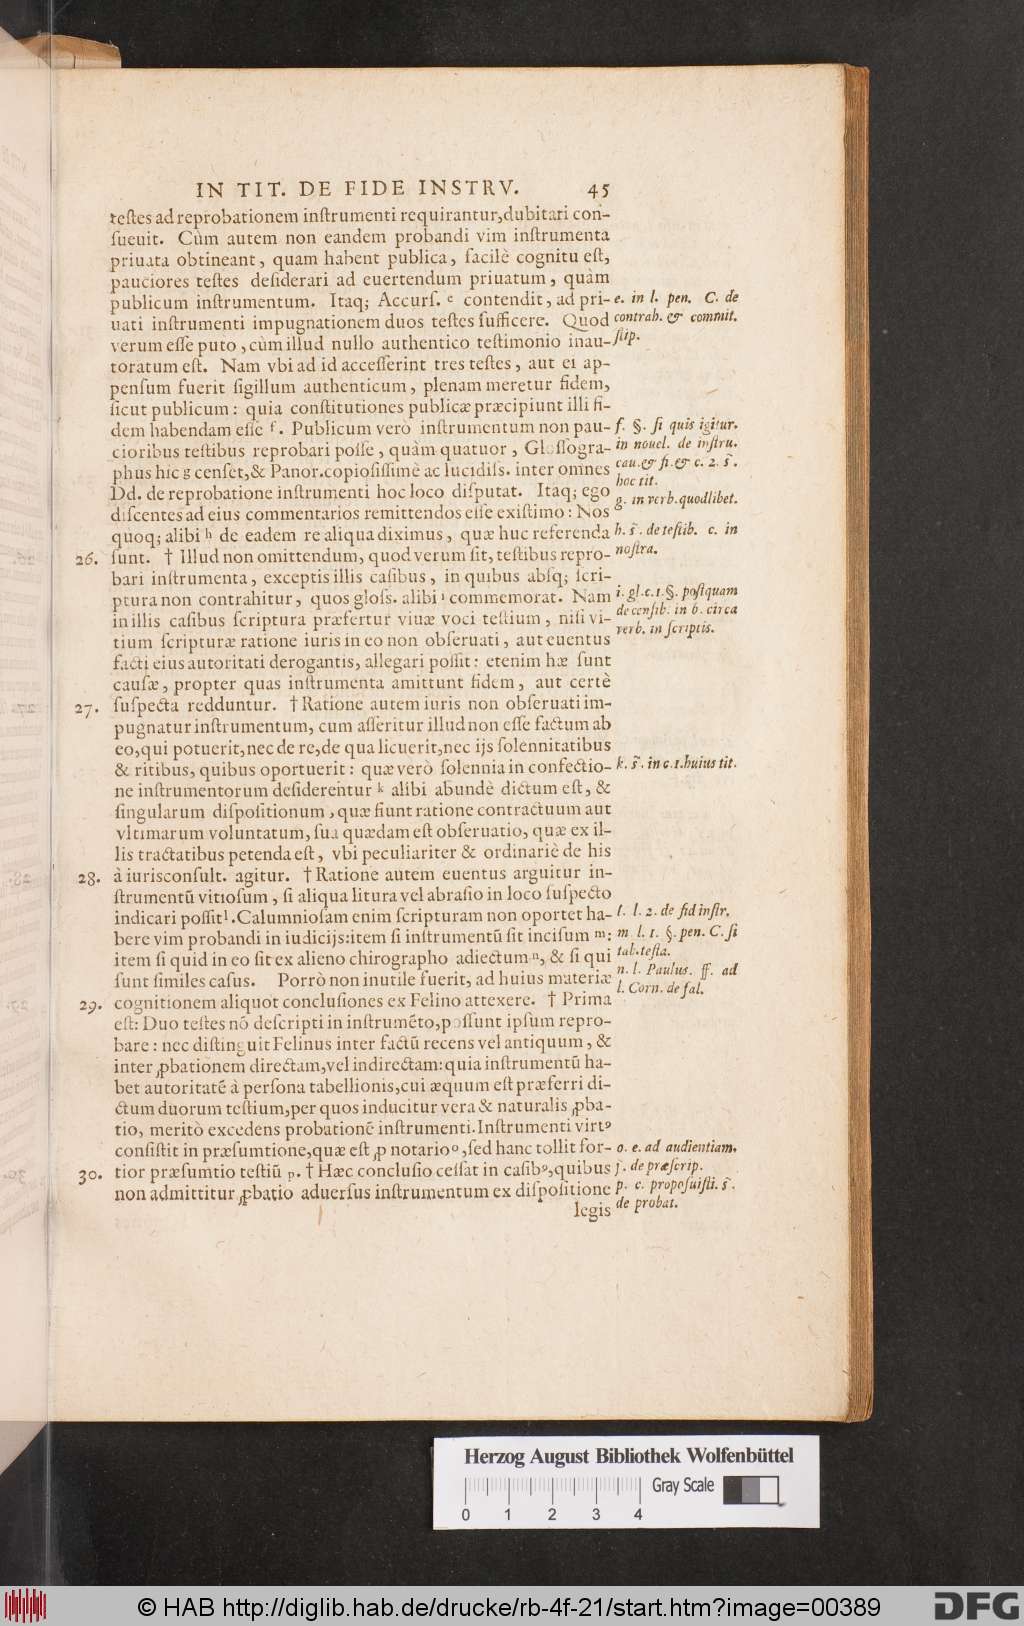 IN TIT. DE FIDE INSTRV. 45
teſtes ad reprobationem inſtrumenti requirantur, dubitari con-
ſueuit. Cùm autem non eandem probandi vim inſtrumenta
priuata obtineant, quam habent publica, facilè cognitu eſt,
pauciores teſtes deſiderari ad euertendum priuatum, quàm
publicum inſtrumentum. Itaq; Accurſ. e contendit, ad pri-
uati inſtrumenti impugnationem duos teſtes ſufficere. Quod
verum eſſe puto, cùm illud nullo authentico teſtimonio inau-
toratum eſt. Nam vbi ad id acceſſerint tres teſtes, aut ei ap-
penſum fuerit ſigillum authenticum, plenam meretur fidem,
ſicut publicum: quia conſtitutiones publicæ præcipiunt illi fi-
dem habendam eſſe f. Publicum verò inſtrumentum non pau-
cioribus teſtibus reprobari poſſe, quàm quatuor, Gloſſogra-
phus hic g cenſet, & Panor. copioſiſſimè ac lucidiſs. inter omnes
Dd. de reprobatione inſtrumenti hoc loco diſputat. Itaq; ego
diſcentes ad eius commentarios remittendos eſſe exiſtimo: Nos
quoq; alibi h de eadem re aliqua diximus, quæ huc referenda
26. ſunt. † Illud non omittendum, quod verum ſit, teſtibus repro-
bari inſtrumenta, exceptis illis caſibus, in quibus abſq; ſcri-
ptura non contrahitur, quos gloſs. alibi i commemorat. Nam
in illis caſibus ſcriptura præfertur viuæ voci teſtium, niſi vi-
tium ſcripturæ ratione iuris in eo non obſeruati, aut euentus
facti eius autoritati derogantis, allegari poſſit: etenim hæ ſunt
cauſæ, propter quas inſtrumenta amittunt fidem, aut certè
27. ſuſpecta redduntur. † Ratione autem iuris non obſeruati im-
pugnatur inſtrumentum, cum aſſeritur illud non eſſe factum ab
eo, qui potuerit, nec de re, de qua licuerit, nec ijs ſolennitatibus
& ritibus, quibus oportuerit: quæ verò ſolennia in confectio-
ne inſtrumentorum deſiderentur k alibi abundè dictum eſt, &
ſingularum diſpoſitionum, quæ fiunt ratione contractuum aut
vltimarum voluntatum, ſua quædam eſt obſeruatio, quæ ex il-
lis tractatibus petenda eſt, vbi peculiariter & ordinariè de his
28. à iurisconſult. agitur. † Ratione autem euentus arguitur in-
ſtrumentū vitioſum, ſi aliqua litura vel abraſio in loco ſuſpecto
indicari poſſit l. Calumnioſam enim ſcripturam non oportet ha-
bere vim probandi in iudicijs: item ſi inſtrumentū ſit inciſum m:
item ſi quid in eo ſit ex alieno chirographo adiectum n, & ſi qui
ſunt ſimiles caſus. Porrò non inutile fuerit, ad huius materiæ
29. cognitionem aliquot concluſiones ex Felino attexere. † Prima
eſt: Duo teſtes nō deſcripti in inſtrumēto, poſſunt ipſum repro-
bare: nec diſtinguit Felinus inter factū recens vel antiquum, &
inter ꝓbationem directam, vel indirectam: quia inſtrumentū ha-
bet autoritatē à perſona tabellionis, cui æquum eſt præferri di-
ctum duorum teſtium, per quos inducitur vera & naturalis ꝓba-
tio, meritò excedens probationē inſtrumenti. Inſtrumenti virtꝰ
conſiſtit in præſumtione, quæ eſt ꝓ notario o, ſed hanc tollit for-
30. tior præſumtio teſtiū p. † Hæc concluſio ceſſat in caſibꝰ, quibus
non admittitur ꝓbatio aduerſus inſtrumentum ex diſpoſitione
legis
e. in l. pen. C. de
contrah. & commit.
ſtip.
f. §. ſi quis igitur.
in nouel. de inſtru.
cau. & fi. & c. 2. s̃.
hoc tit.
g. in verb. quodlibet.
h. s̃. de teſtib. c. in
noſtra.
i. gl. c. 1. §. poſtquam
de cenſib. in 6. circa
verb. in ſcriptis.
k. s̃. in c. 1. huius tit.
l. l. 2. de fid inſtr.
m l. 1. §. pen. C. ſi
tab. teſta.
n. l. Paulus. ff. ad
l. Corn. de fal.
o. e. ad audientiam.
j. de præſcrip.
p. c. propoſuiſti. s̃.
de probat.
Herzog August Bibliothek Wolfenbüttel
Gray Scale
0 1 2 3 4
© HAB http://diglib.hab.de/drucke/rb-4f-21/start.htm?image=00389
DFG